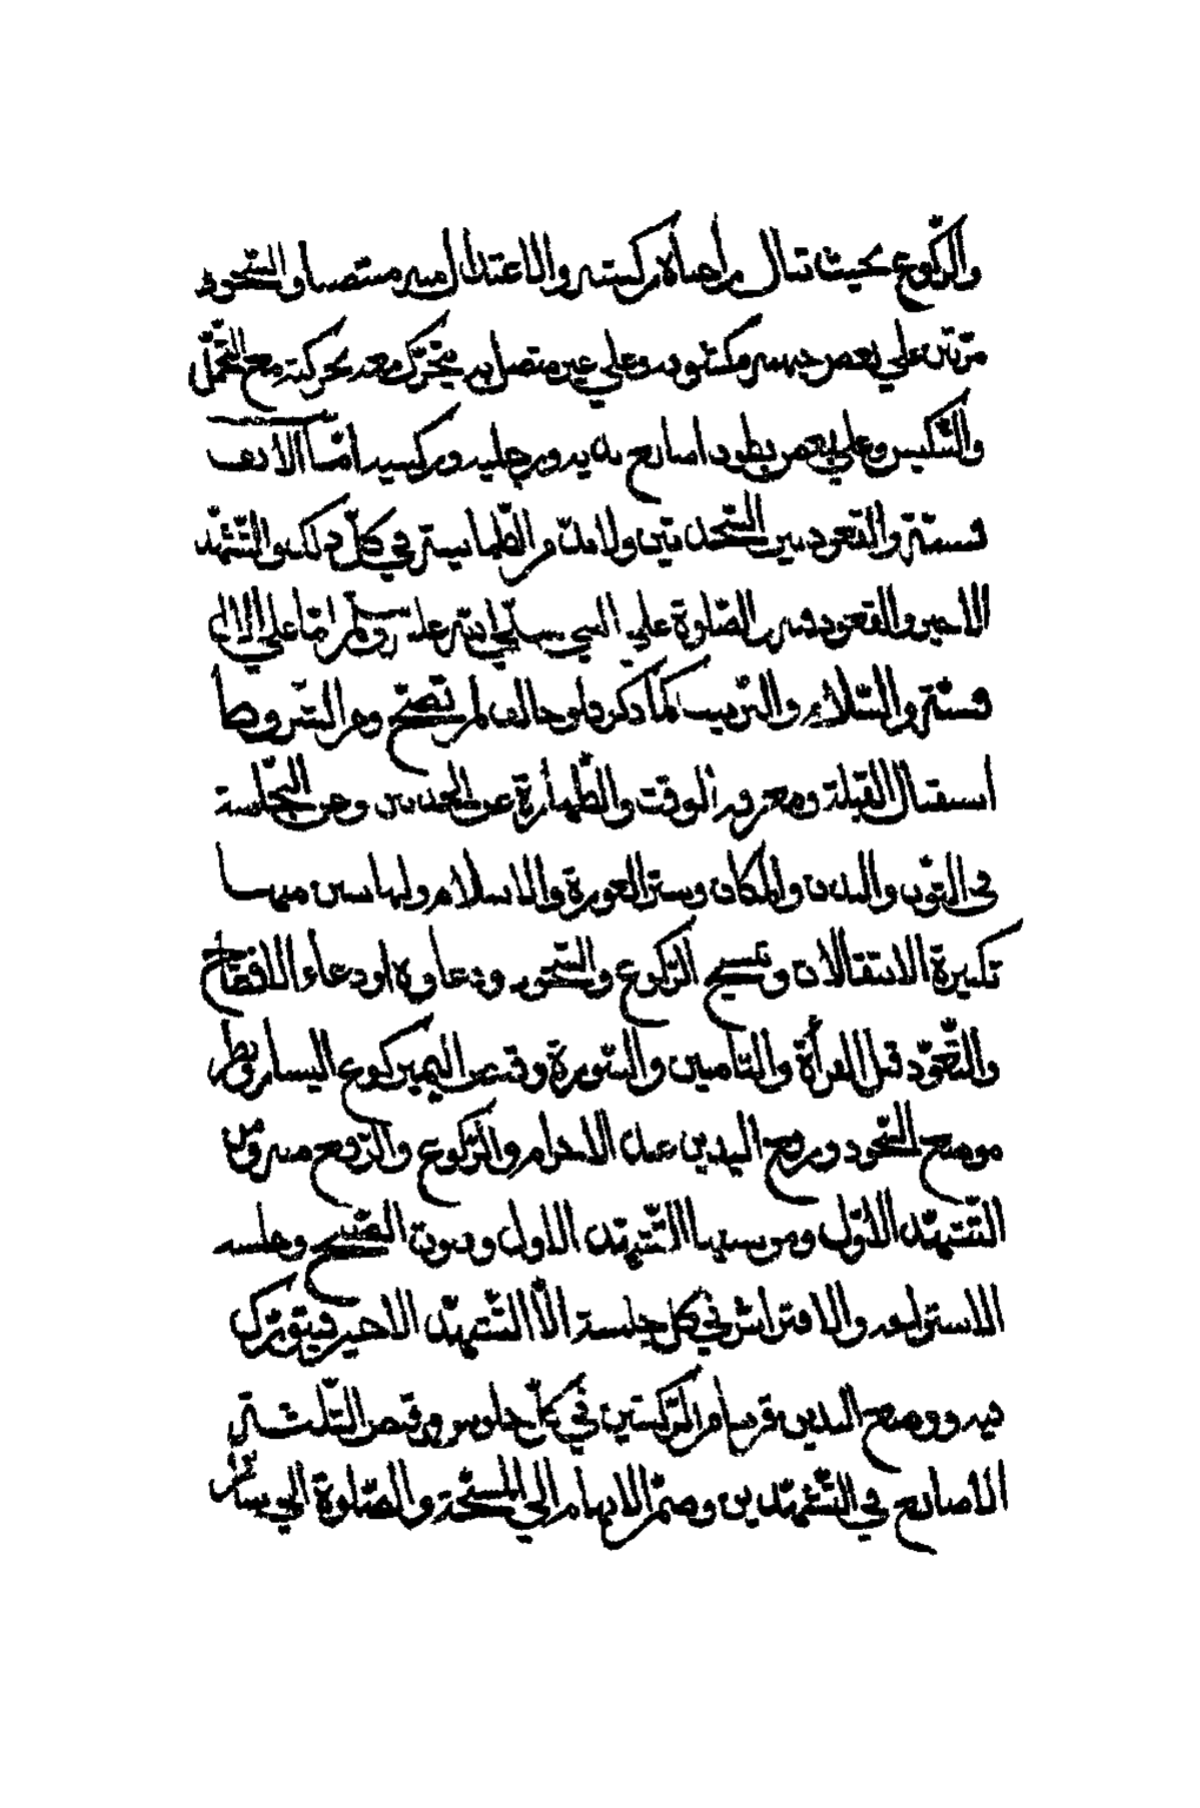 والرّكوع بحيث تنال راحتاه ركبتيه والاعتدال منتصبا والسّجود
مرّتين علي بعض جبهته مكشوفة وعلي غير متصل به يتحرّك معه بحركته مع التّحمّل
والتنكيس وعلي بعض بطون اصابع يديه ورجليه وركبتيه امّا الانف
فسنّة والقعود بين السّجدتين ولابدّ من الطّمانينة في كلّ ذلك والتّشهّد
الاخير والقعود فيه والصّلوة علي النبي صلي الله عليه وسلم امّا علي الال
فسنّة والسّلام والترتيب كما ذكر فلو خالف لم تصحّ ومن الشّروط
استقبال القبلة ومعرفة الوقت والطّهارة عن الحدثين وعن النّجاسة
في الثوب والبدن والمكان وستر العورة والاسلام ولها سنن منها
تكبيرة الانتقالات وتسبيح الرّكوع والسّجود ودعاوه او دعاء الافتتاح
والتّعوّذ قبل القرأة والتامين والسّورة وقبض اليمين كوع اليسار ونظر
موضع السّجود ورفع اليدين عند الاحرام والرّكوع والرّفع منه ومن
التّشهّد الاوّل ومن سننها التّشهّد الاول وقنوت الصّبح وجلسة
الاستراحة والافتراش في كل جلسة الّا التّشهّد الاخير فيتورّك
فيه ووضع اليدين قريبا من الرّكبتين في كلّ جلوس وقبض الثّلثة
الاصابع في التّشهّدين وضمّ الابهام الي المسبّحة والصّلوة الي ساتر